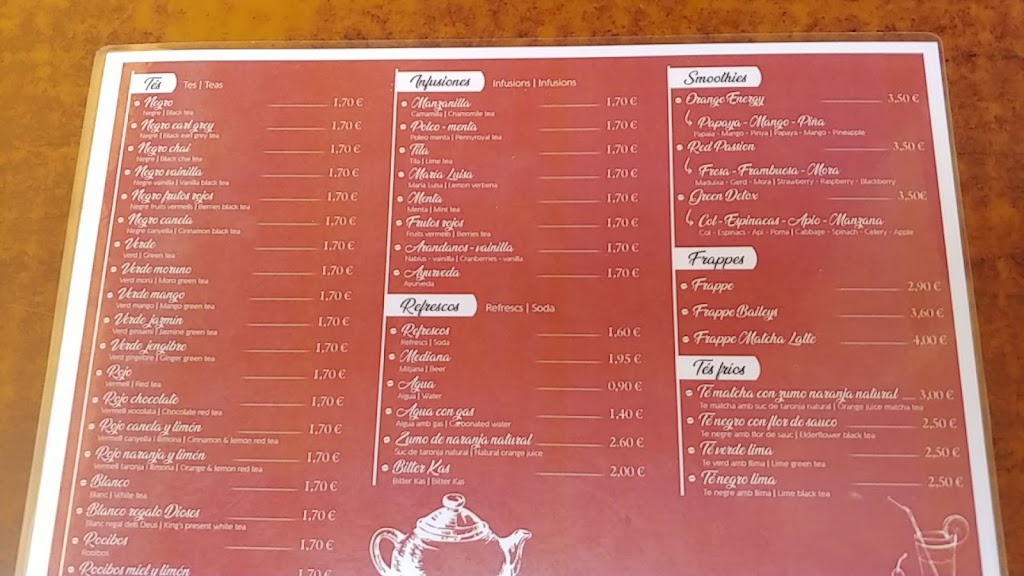 Tés Tes | Teas
Negro 1,70 €
Negre | Black tea
Negro earl grey 1,70 €
Negre | Black earl grey tea
Negro chai 1,70 €
Negre | Black chai tea
Negro vainilla 1,70 €
Negre vainilla | Vanilla black tea
Negro frutos rojos 1,70 €
Negre fruits vermells | Berries black tea
Negro canela 1,70 €
Negre canyella | Cinnamon black tea
Verde 1,70 €
Verd | Green tea
Verde moruno 1,70 €
Verd morú | Moro green tea
Verde mango 1,70 €
Verd mango | Mango green tea
Verde jazmín 1,70 €
Verd gessamí | Jasmine green tea
Verde jengibre 1,70 €
Verd gingebre | Ginger green tea
Rojo 1,70 €
Vermell | Red tea
Rojo chocolate 1,70 €
Vermell xocolata | Chocolate red tea
Rojo canela y limón 1,70 €
Vermell canyella i llimona | Cinnamon & lemon red tea
Rojo naranja y limón 1,70 €
Vermell taronja i llimona | Orange & lemon red tea
Blanco 1,70 €
Blanc | White tea
Blanco regalo Dioses 1,70 €
Blanc regal dels Deus | King's present white tea
Rooibos 1,70 €
Rooibos
Rooibos miel y limón 1,70 €
Infusiones Infusions | Infusions
Manzanilla 1,70 €
Camamilla | Chamomile tea
Poleo - menta 1,70 €
Poleo menta | Pennyroyal tea
Tila 1,70 €
Tila | Lime tea
María Luisa 1,70 €
Maria Luisa | Lemon verbena
Menta 1,70 €
Menta | Mint tea
Frutos rojos 1,70 €
Fruits vermells | Berries tea
Arandanos - vainilla 1,70 €
Nabius - vainilla | Cranberries - vanilla
Ayurveda 1,70 €
Ayurveda
Refrescos Refrescs | Soda
Refrescos 1,60 €
Refrescs | Soda
Mediana 1,95 €
Mitjana | Beer
Agua 0,90 €
Aigua | Water
Agua con gas 1,40 €
Aigua amb gas | Carbonated water
Zumo de naranja natural 2.60 €
Suc de taronja natural | Natural orange juice
Bitter Kas 2,00 €
Bitter Kas | Bitter Kas
Smoothies
Orange Energy 3,50 €
Papaya - Mango - Piña
Papaia - Mango - Pinya | Papaya - Mango - Pineapple
Red Passion 3,50 €
Fresa - Frambuesa - Mora
Maduixa - Gerd - Mora | Strawberry - Raspberry - Blackberry
Green Detox 3,50€
Col - Espinacas - Apio - Manzana
Col - Espinacs - Api - Poma | Cabbage - Spinach - Celery - Apple
Frappes
Frappe 2,90 €
Frappe Baileys 3,60 €
Frappe Matcha Latte 4,00 €
Tés fríos
Té matcha con zumo naranja natural 3,00 €
Te matcha amb suc de taronja natural | Orange juice matcha tea
Té negro con flor de sauco 2,50 €
Te negre amb flor de sauc | Elderflower black tea
Té verde lima 2,50 €
Te verd amb llima | Lime green tea
Té negro lima 2,50 €
Te negre amb llima | Lime black tea